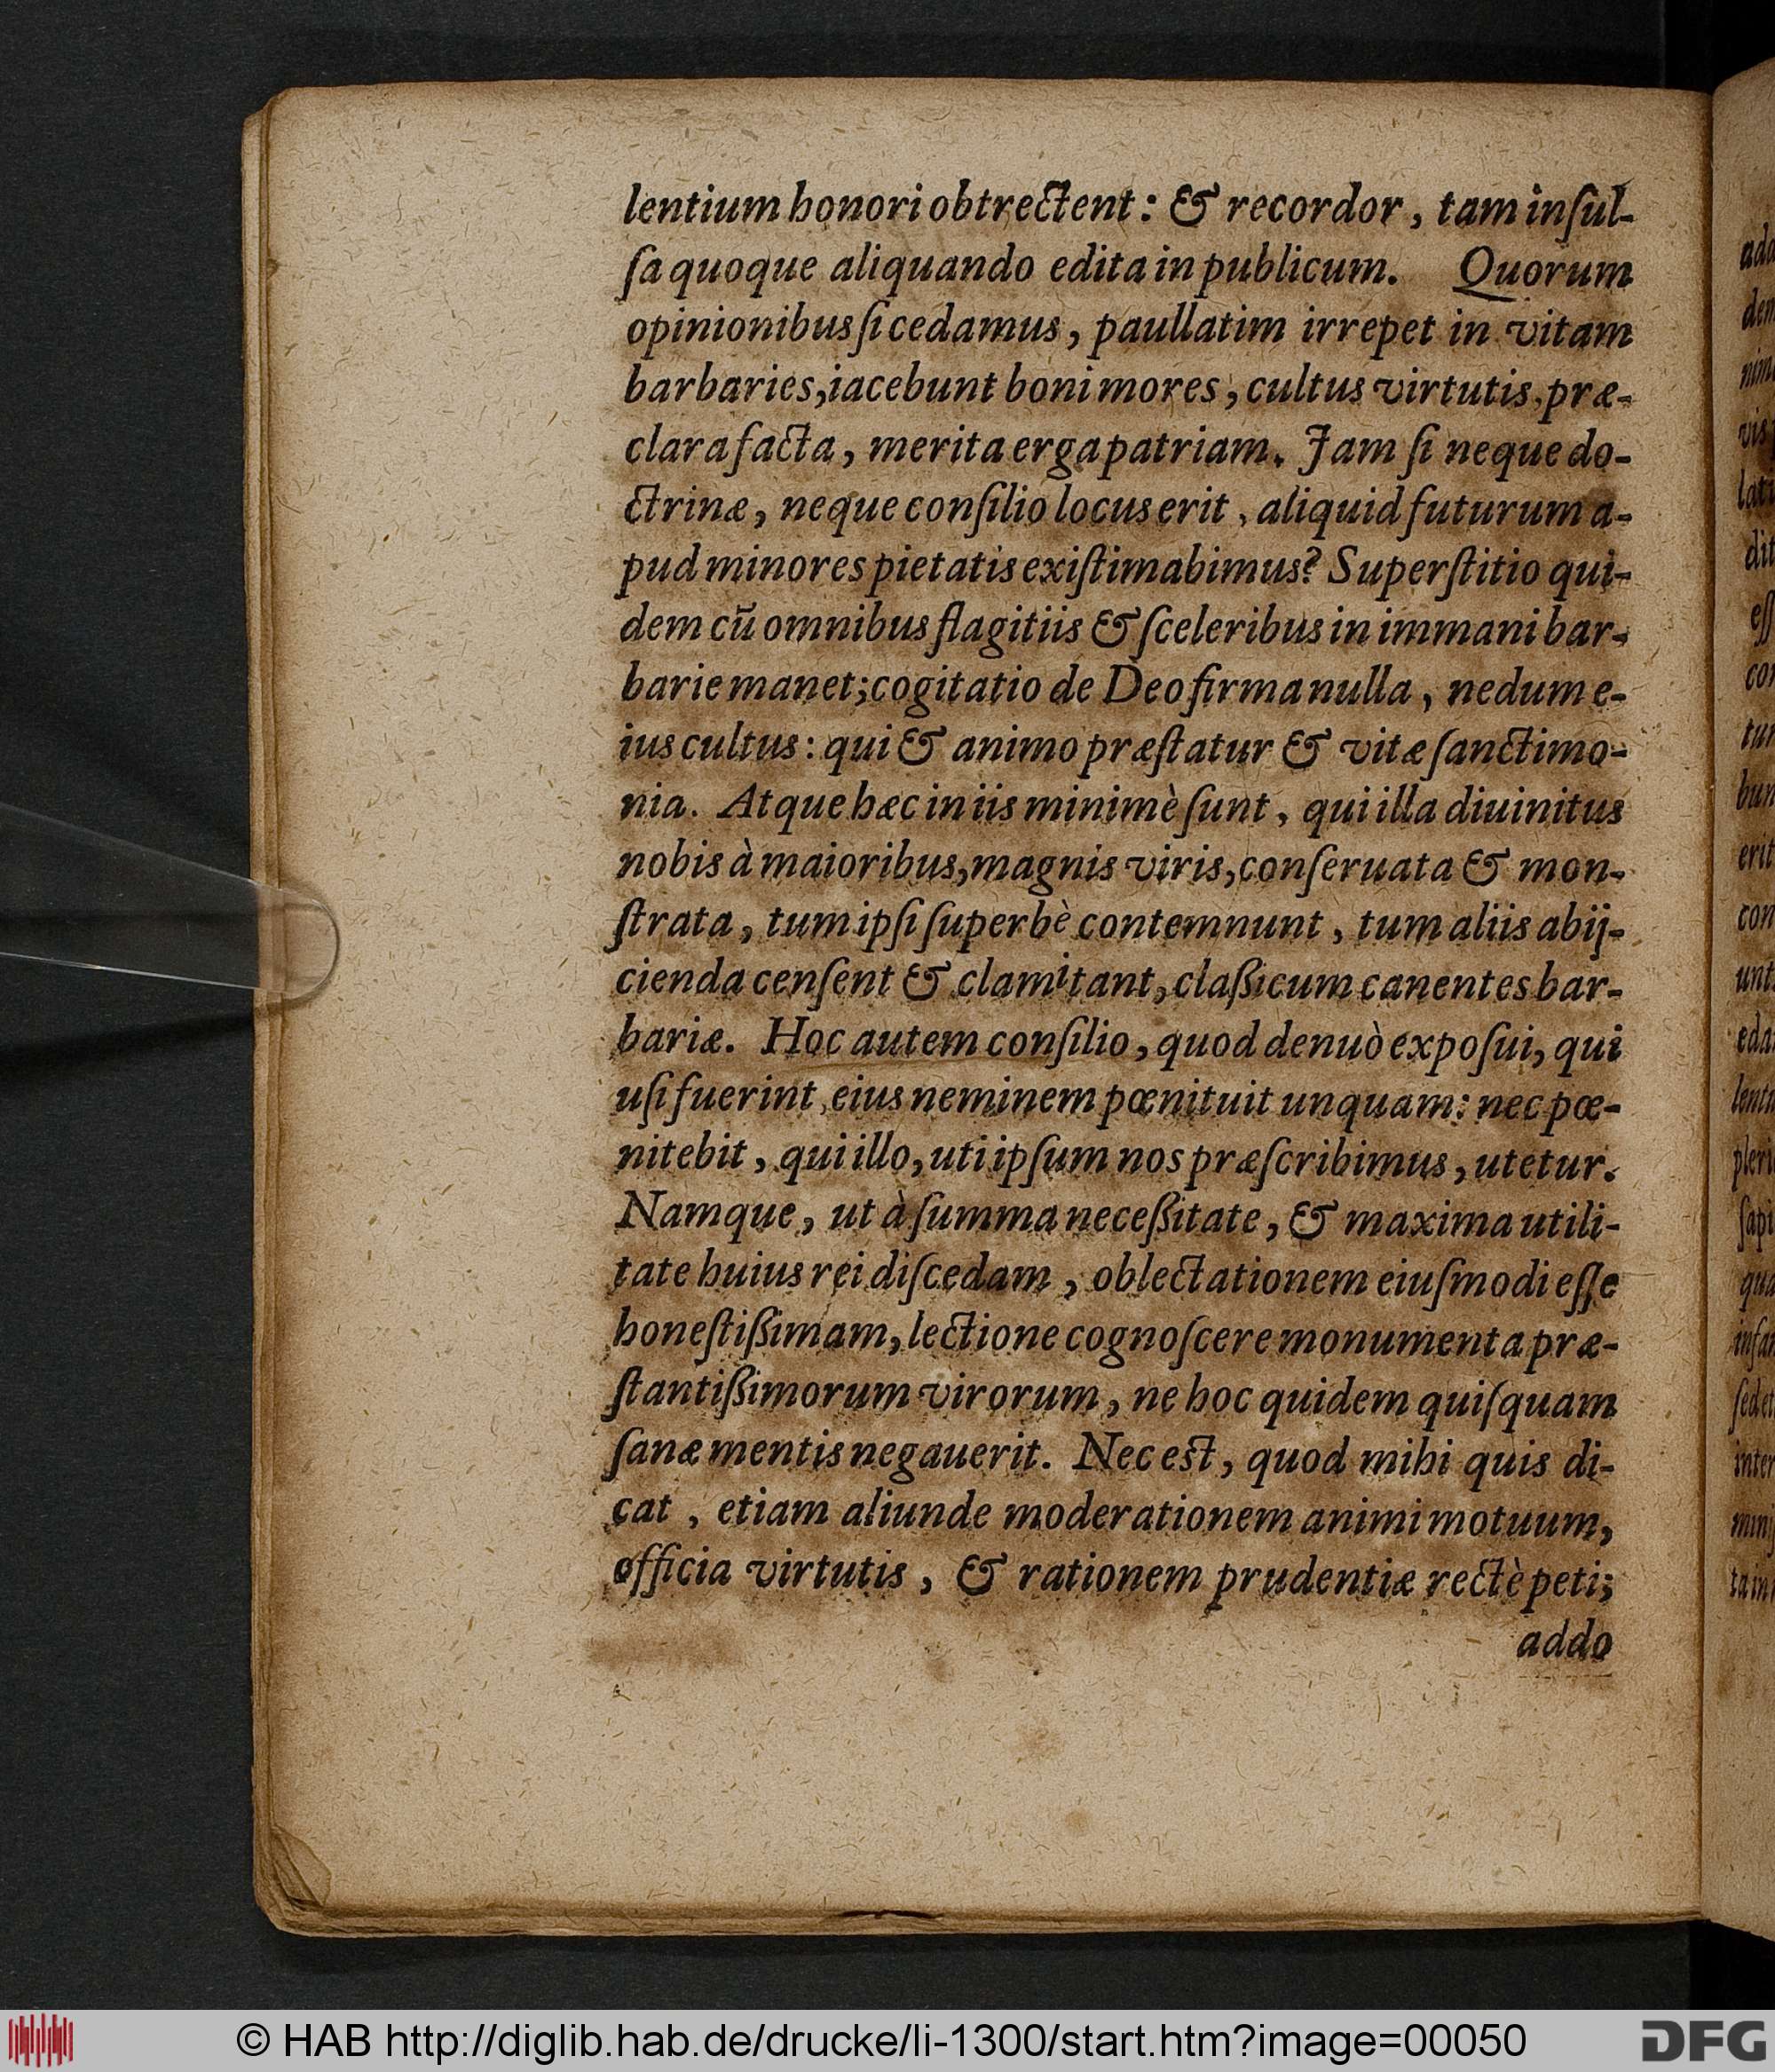 lentium honori obtrectent: & recordor, tam inſul-
ſa quoque aliquando edita in publicum. Quorum
opinionibus ſi cedamus, paullatim irrepet in vitam
barbaries, iacebunt boni mores, cultus virtutis, præ-
clara facta, merita erga patriam. Jam ſi neque do-
ctrinæ, neque conſilio locus erit, aliquid futurum a-
pud minores pietatis exiſtimabimus? Superſtitio qui-
dem cū omnibus flagitiis & ſceleribus in immani bar-
barie manet; cogitatio de Deo firma nulla, nedum e-
ius cultus: qui & animo præſtatur & vitæ ſanctimo-
nia. Atque hæc in iis minimè ſunt, qui illa diuinitus
nobis à maioribus, magnis viris, conſeruata & mon-
ſtrata, tum ipſi ſuperbè contemnunt, tum aliis abij-
cienda cenſent & clamitant, claßicum canentes bar-
bariæ. Hoc autem conſilio, quod denuò expoſui, qui
uſi fuerint, eius neminem pœnituit unquam: nec pœ-
nitebit, qui illo, uti ipſum nos præſcribimus, utetur.
Namque, ut à ſumma neceßitate, & maxima utili-
tate huius rei diſcedam, oblectationem eiuſmodi eſſe
honeſtißimam, lectione cognoſcere monumenta præ-
ſtantißimorum virorum, ne hoc quidem quiſquam
ſanæ mentis negauerit. Nec est, quod mihi quis di-
cat, etiam aliunde moderationem animi motuum,
officia virtutis, & rationem prudentiæ rectè peti;
addo
© HAB http://diglib.hab.de/drucke/li-1300/start.htm?image=00050
DFG